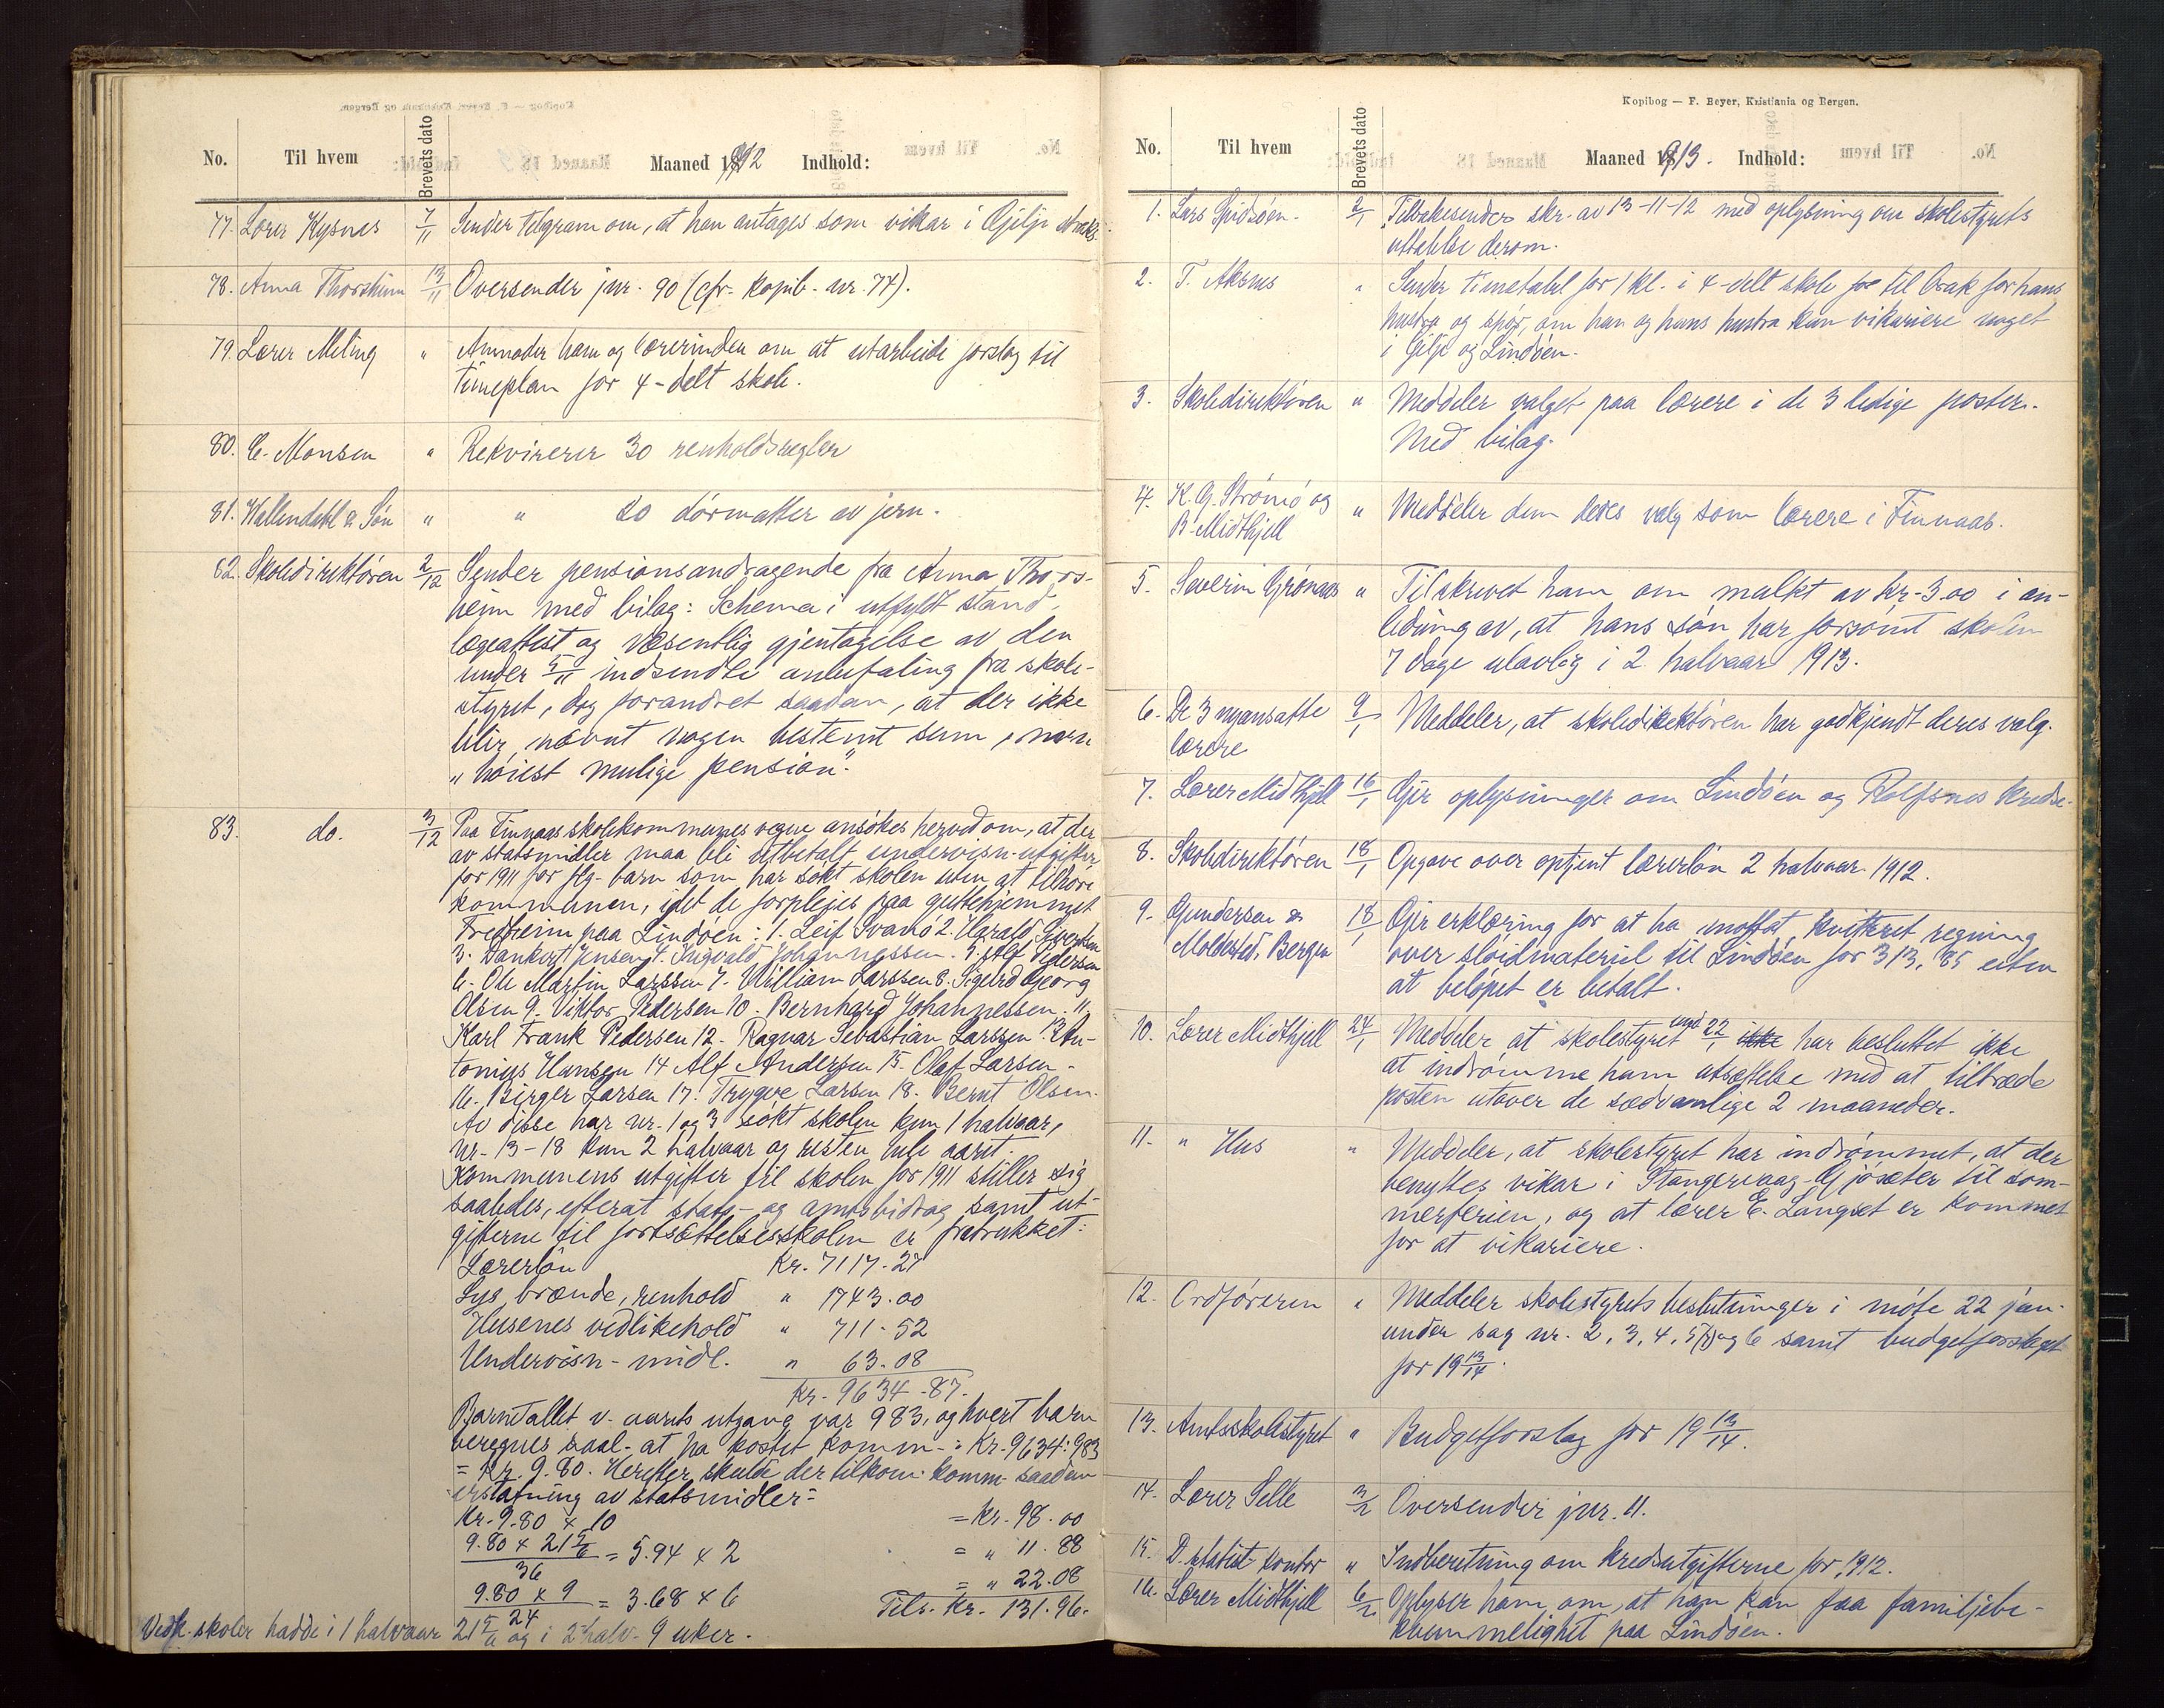 No. Til hvem Brevets dato Maaned 1912 Indhold:
77. Lærer Kysnes 7/11 Sender telgram om, at han antages som vikar i Gilje straks.
78. Anna Thorsheim 13/11 Oversender jnr. 90 (cfr. kopib. nr. 74).
79. Lærer Meling " Anmoder ham og lærerinden om at utarbeide forslag til
timeplan for 4-delt skole.
80. C. Monsen " Rekvirerer 30 renholdsregler
81. Wallendahl & Søn " " 20 dørmatter av jern.
82. Skoledirektøren 2/12 Sender pensionsandragende fra Anna Thors-
heim med bilag: Schema i utfyldt stand,
lægeattest og væsentlig gjentagelse av den
under 5/11 indsendte anbefaling fra skole-
styret, dog forandret saadan, at der ikke
blir nævnt nogen bestemt sum, men
"høiest mulige pension".
83. do. 3/12 Paa Finnaas skolekommunes vegne ansøkes herved om, at der
av statsmidler maa bli utbetalt undervisn-utgifter
for 1911 for flg. barn som har søkt skolen uten at tilhøre
kommunen, idet de forpleies paa guttehjemmet
Fredheim paa Lindøen: 1. Leif Svanø 2. Harald Sivertsen
3. Dankert Jensen 4. Ingvald Johannessen. 5. Alf Pedersen
6. Ole Martin Larssen 7. William Larssen 8. Sigurd Georg
Olsen 9. Viktor Pedersen 10. Bernhard Johannessen. 11.
Karl Frank Pedersen 12. Ragnar Sebastian Larssen 13. An-
tonius Hansen 14 Alf Andersen 15. Olaf Larsen.
16. Birger Larsen 17. Trygve Larsen 18. Bernt Olsen.
Av disse har nr. 1 og 3 søkt skolen kun 1 halvaar,
nr. 13-18 kun 2 halvaar og resten hele aaret.
Kommunens utgifter til skolen for 1911 stiller sig
saaledes, efterat stats- og amtsbidrag samt ut-
gifterne til fortsættelsesskolen er fratrukket:
Lærerløn Kr. 7117.27
Lys, brænde, renhold " 1743.00
Husenes vedlikehold " 711.52
Undervisn-midl. " 63.08
Kr. 9634.87.
Barnetallet v. aarets utgang var 983, og hvert barn
beregnes saal. at ha kostet komm.: Kr. 9634:983
= Kr. 9.80. Herefter skulde der tilkom. komm. saadan
erstatning av statsmidler:
Kr. 9.80 x 10 = Kr. 98.00
9.80 x 21 5/6 / 36 = 5.94 x 2 = " 11.88
9.80 x 9 / 24 = 3.68 x 6 = " 22.08
Tils. Kr. 131.96.
Vedk. skoler hadde i 1 halvaar 21 5/6 og i 2 halv. 9 uker.
Kopibog — F. Beyer, Kristiania og Bergen.
No. Til hvem Brevets dato Maaned 1913. Indhold:
1. Lars Spidsøen 2/1 Tilbakesender skr. av 13-11-12 med oplysning om skolestyrets
uttalelse derom.
2. T. Aksnes " Sender timetabel for 1 kl. i 4-delt skole til bruk for hans
hustru og spør, om han og hans hustru kan vikariere noget
i Gilje og Lindøen.
3. Skoledirektøren " Meddeler valget paa lærere i de 3 ledige poster.
Med bilag.
4. K. G. Strømø og " Meddeler dem deres valg som lærere i Finnaas.
B. Midthjell
5. Severin Grønaas " Tilskrevet ham om mulkt av Kr. 3.00 i an-
ledning av, at hans søn har forsømt skolen
7 dage ulovlig i 2. halvaar 1913.
6. De 3 nyansatte 9/1 Meddeler, at skoledirektøren har godkjendt deres valg.
lærere
7. Lærer Midthjell 16/1 Gir oplysninger om Lindøen og Rolfsnes kredse.
8. Skoledirektøren 18/1 Opgave over optjent lærerløn 2 halvaar 1912.
9. Gundersen & 18/1 Gir erklæring for at ha mottat kvittert regning
Moldested, Bergen over sløidmateriel til Lindøen for 313,85 uten
at beløpet er betalt.
10. Lærer Midthjell 24/1 Meddeler at skolestyret und. 22/1 ikke har besluttet ikke
at indrømme ham utsættelse med at tiltræde
posten utover de sædvanlige 2 maaneder.
11. " Hus " Meddeler, at skolestyret har indrømmet, at der
benyttes vikar i Stangervaag-Gjøsæter til som-
merferien, og at lærer E. Langset er kommet
for at vikariere.
12. Ordføreren " Meddeler skolestyrets beslutninger i møte 22 jan.
under sag nr. 2, 3, 4, 5 og 6 samt budgetforslaget
for 1913/14.
13. Amtsskolestyret " Budgetforslag for 1913/14.
14. Lærer Selle 3/2 Oversender jnr. 11.
15. D. statist. kontor " Indberetning om kredsutgifterne for 1912.
16. Lærer Midthjell 6/2 Oplyser ham om, at han kan faa familjebe-
kvemmelighet paa Lindøen.